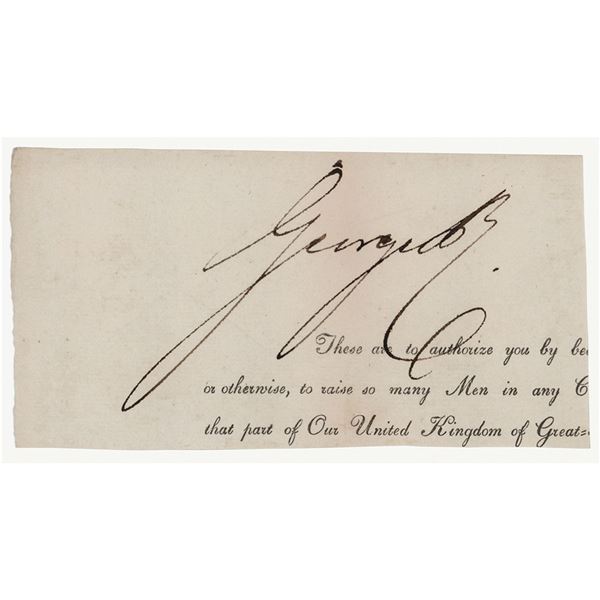 George R.
These are to authorize you by
or otherwise, to raise so many Men in any
that part of Our United Kingdom of Great=